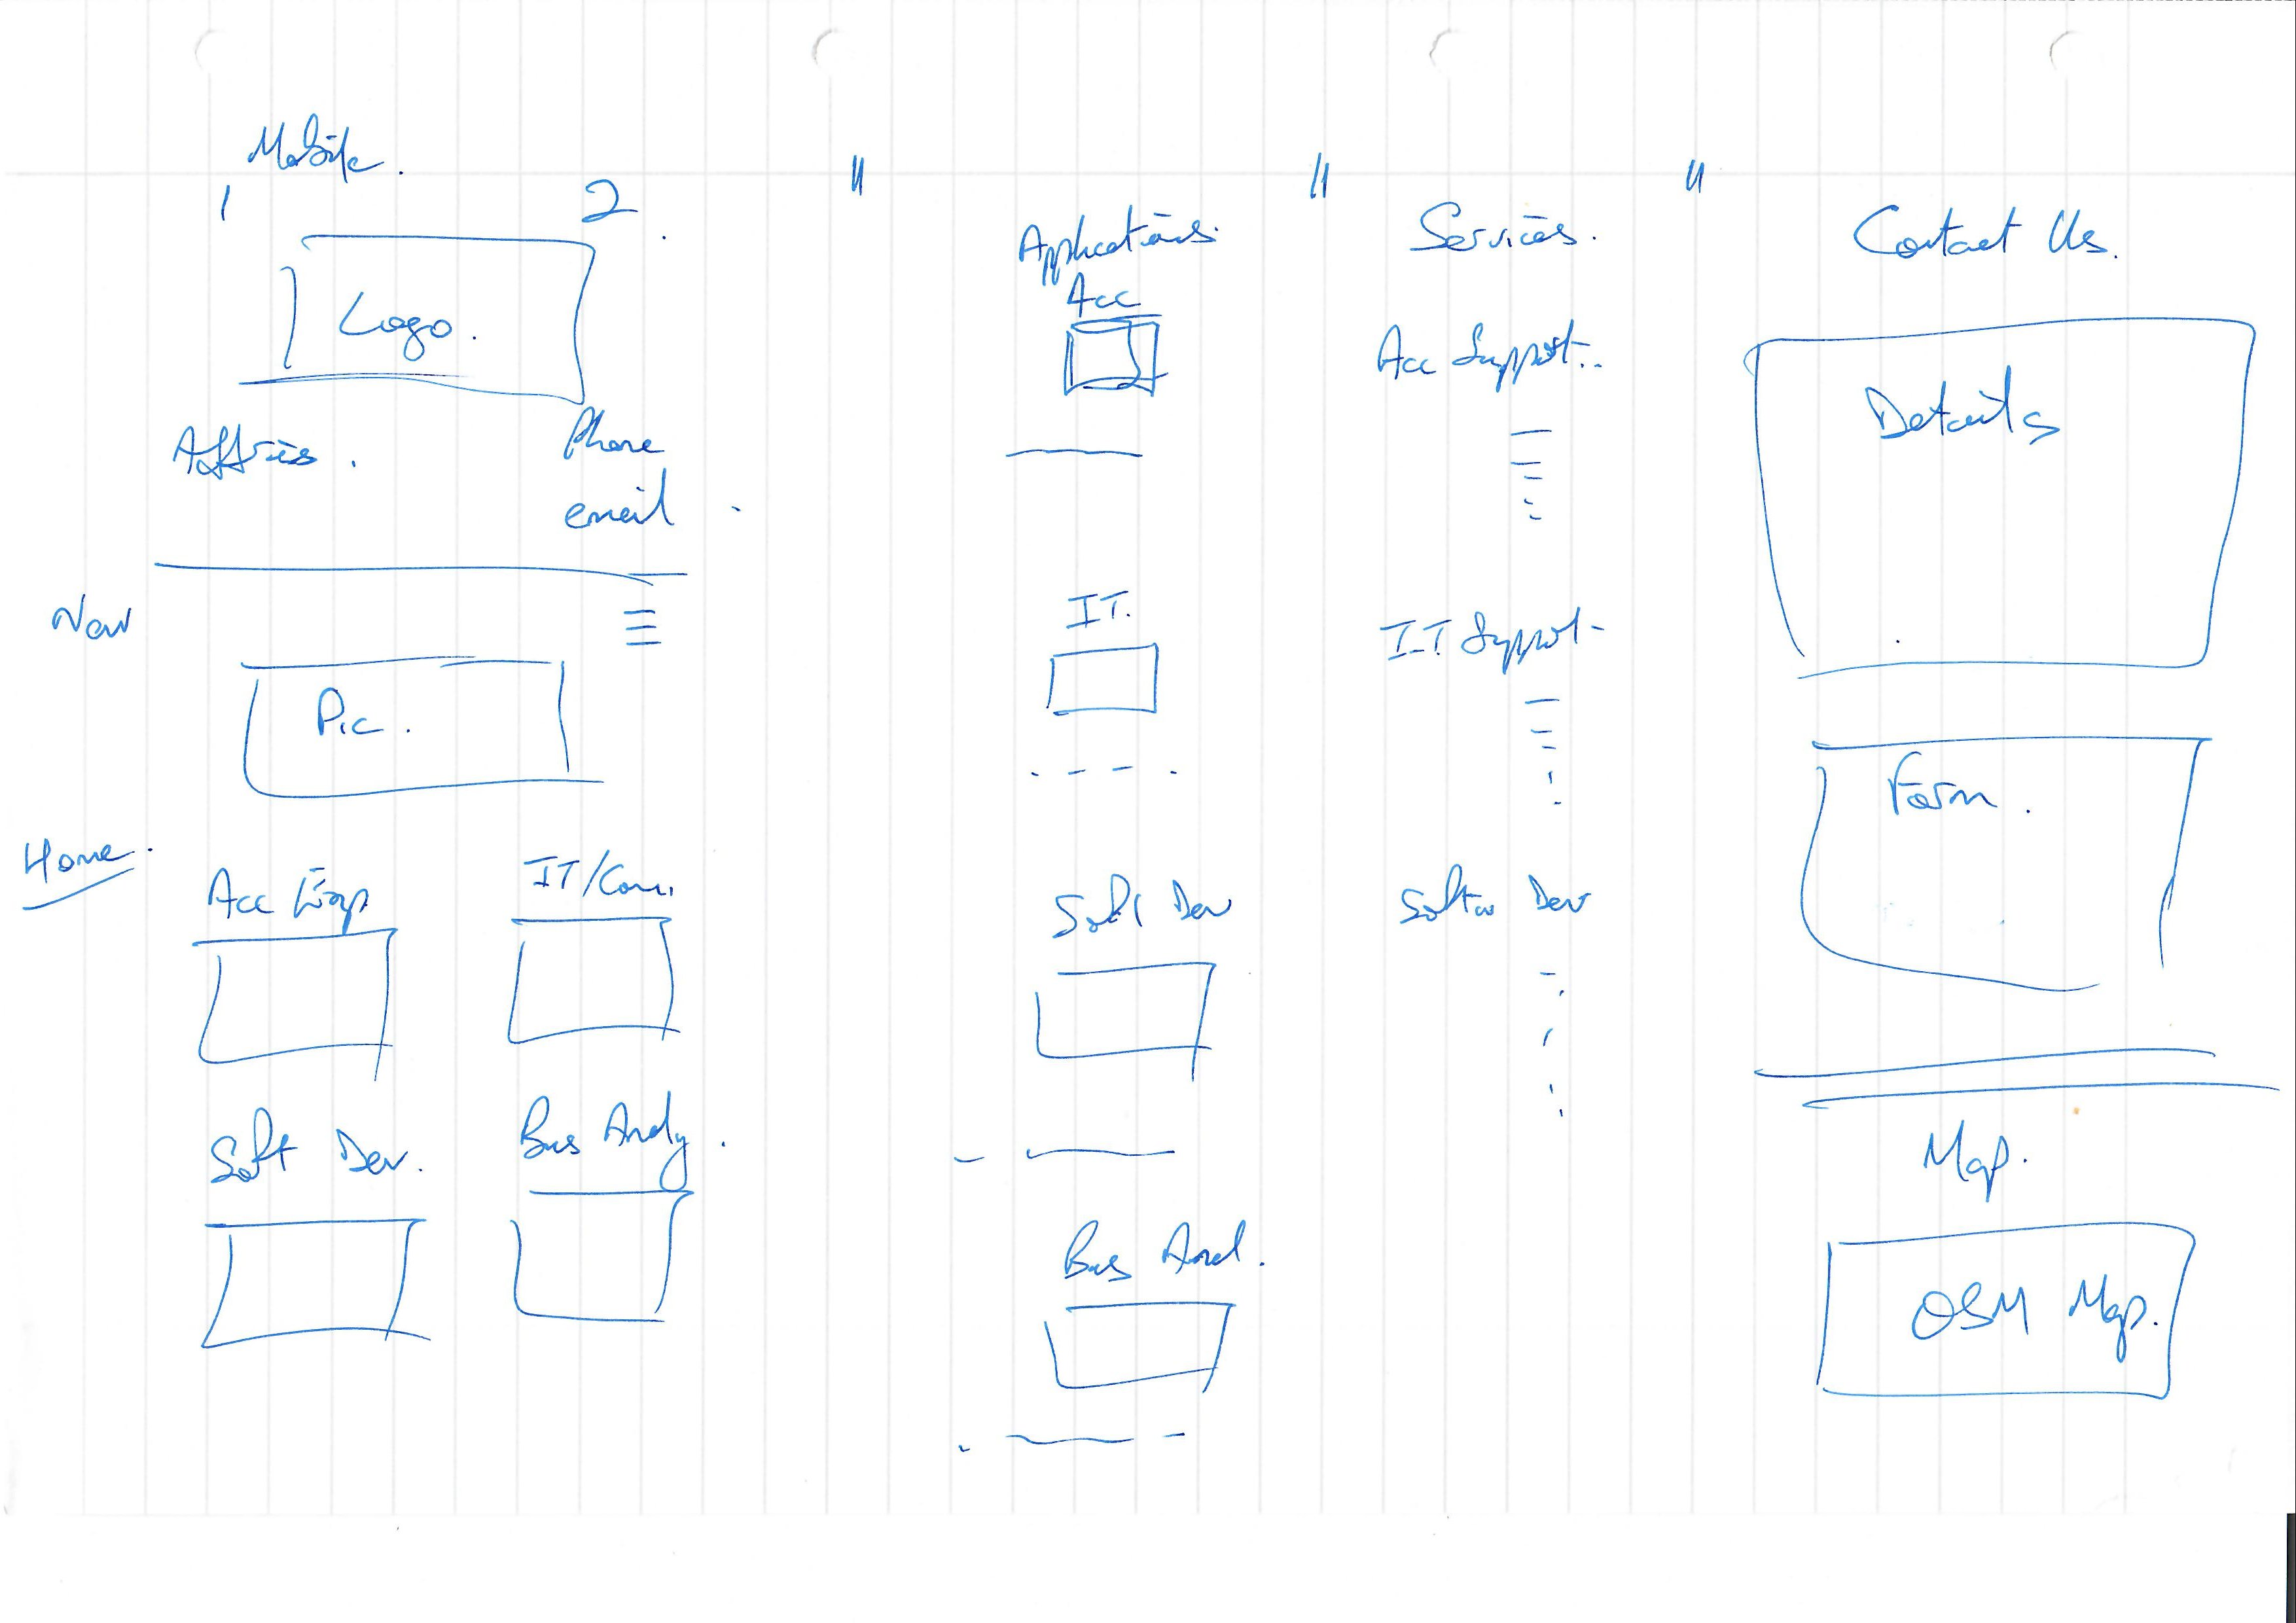 Mobile.
1 2
Logo.
Phone
email
Nav
Pic.
Home.
Acc
IT/Com.
Soft Dev.
Bus Analy.
"
Applications.
Acc
IT.
Soft Dev
Bus Anal.
"
Services.
Acc Support..
IT Support-
Softw Dev
"
Contact Us.
Details
Form.
Map.
OSM Map.